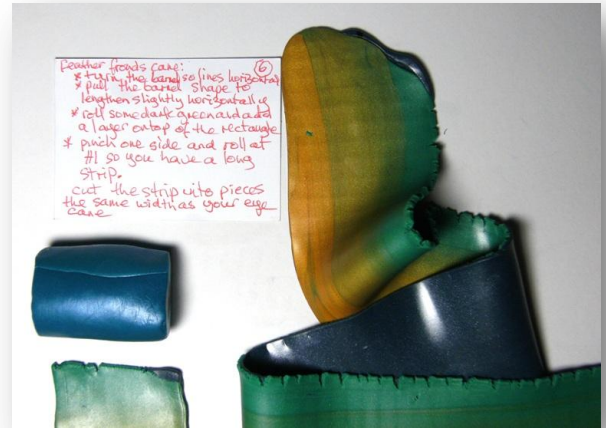 feather fronds cane: 6
* turn the barrel so lines horizontal
* pull the barrel shape to
lengthen slightly horizontally
* roll some dark green and add
a layer on top of the rectangle
* pinch one side and roll at
#1 so you have a long
strip.
cut the strip into pieces
the same width as your eye
cane